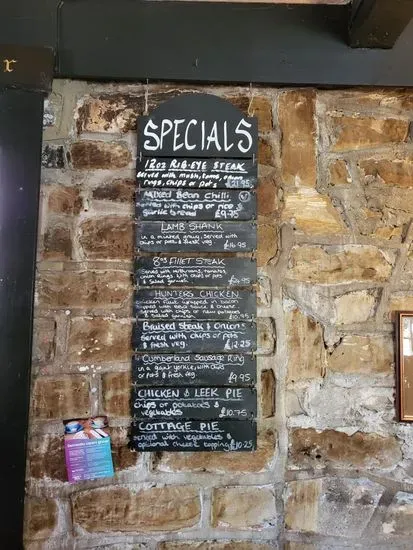 SPECIALS
12oz RIB-EYE STEAK
Served with mush, toms, onion
rings, chips or pots £21.95
Mixed Bean Chilli V
Served with chips or rice &
garlic bread £9.75
LAMB SHANK
in a minted gravy, served with
chips or pots & fresh veg £16.95
8oz FILLET STEAK
Served with mushrooms, tomatoes,
onion rings, with chips or pots
& salad garnish
HUNTERS CHICKEN
chicken fillet wrapped in bacon
topped with BBQ sauce & cheese
served with chips or new potatoes
& salad garnish
Braised Steak & Onions
Served with chips or pots
& fresh veg. £12.25
Cumberland Sausage Ring
in a giant yorkie, with chips
or pots & fresh veg £9.95
CHICKEN & LEEK PIE
chips or potatoes &
vegetables £10.75
COTTAGE PIE
served with vegetables &
optional cheese topping £10.25
r